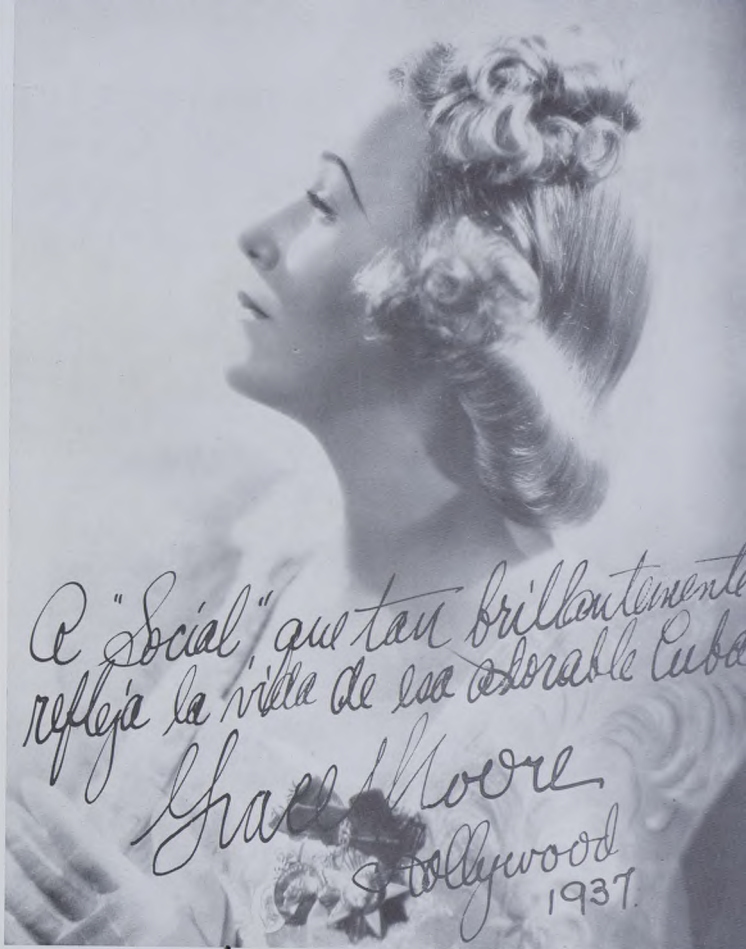 A "Social", que tan brillantemente
refleja la vida de esa adorable Cuba
Grace Moore
Hollywood
1937.